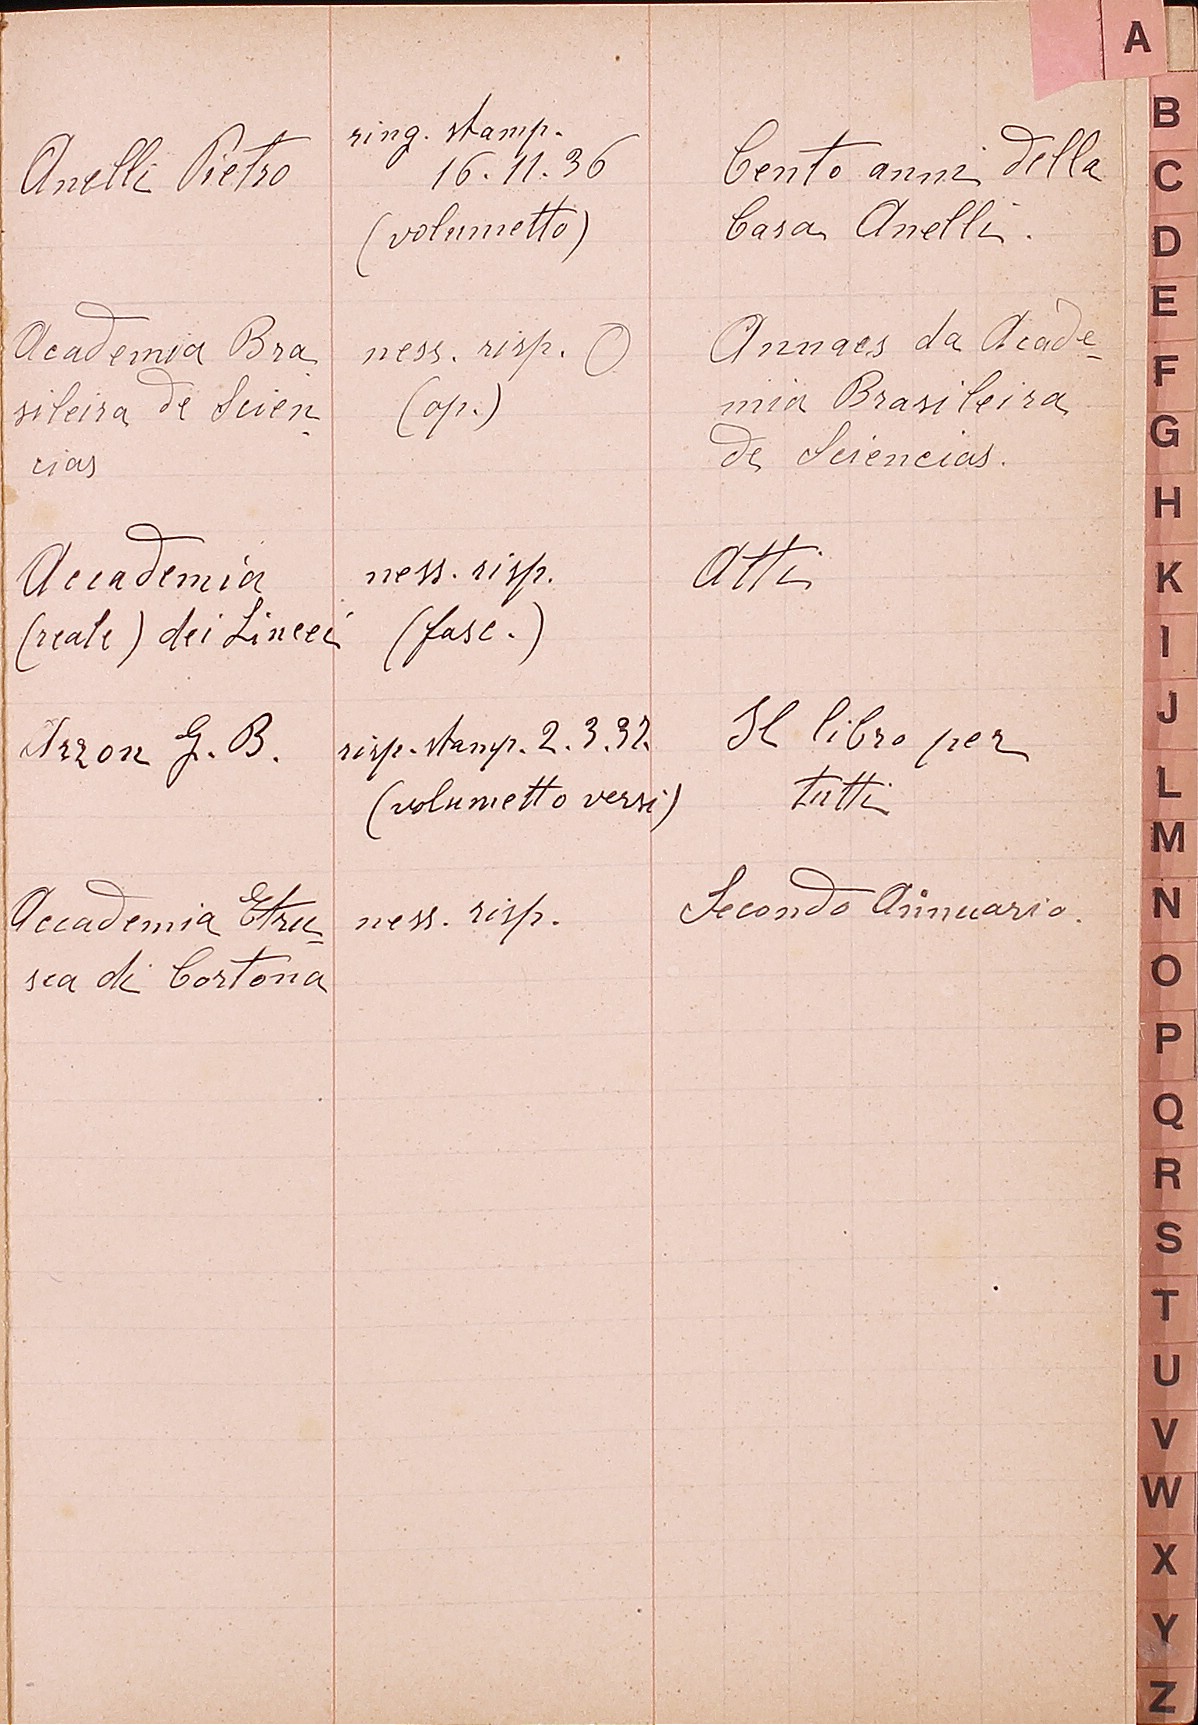 A
Anelli Pietro
ring. stamp.
16.11.36
(volumetto)
Cento anni della
Casa Anelli.
Academia Bra
sileira de Scien-
cias
ness. risp. O
(op.)
Annaes da Acade-
mia Brasileira
de Sciencias.
Accademia
(reale) dei Lincei
ness. risp.
(fasc.)
Atti
Arzon G. B.
risp. stamp. 2.3.32.
(volumetto versi)
Il libro per
tutti
Accademia Etru-
sca di Cortona
ness. risp.
Secondo Annuario.
B
C
D
E
F
G
H
K
I
J
L
M
N
O
P
Q
R
S
T
U
V
W
X
Y
Z